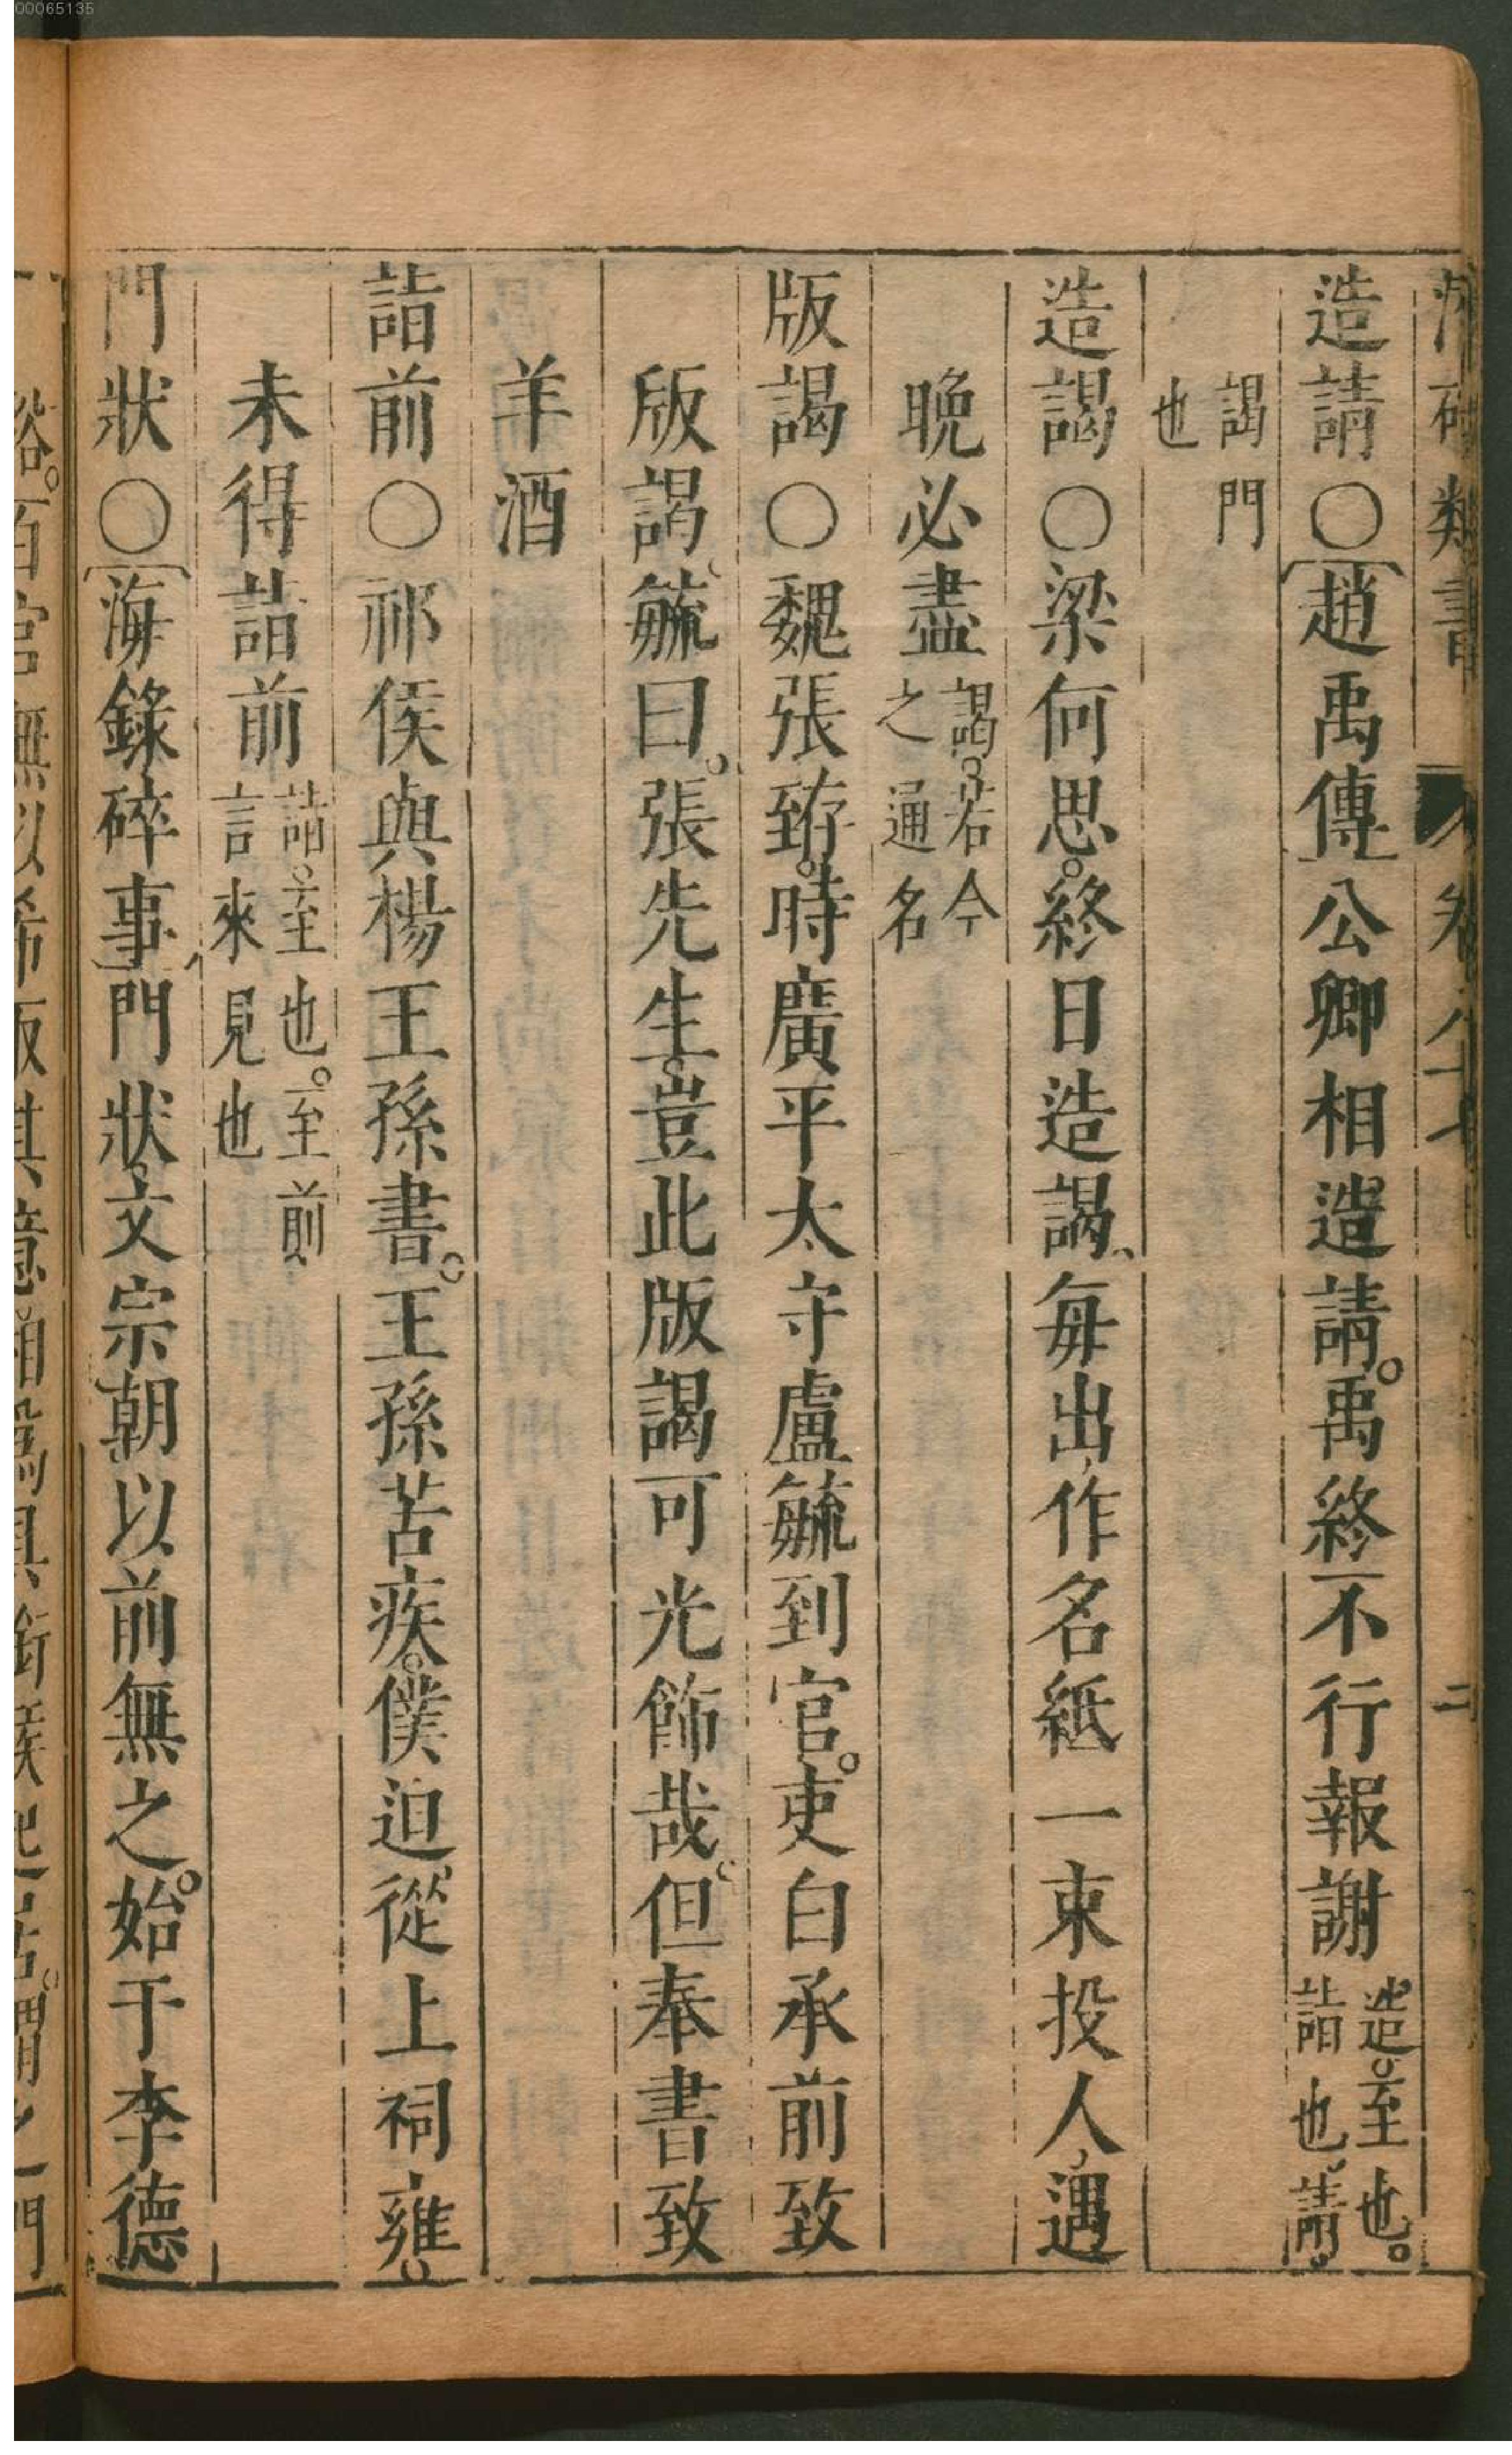 00065135
造請○趙禹傳公卿相造請禹終不行報謝造至也詣也請
謁門也
造謁○梁何思終日造謁每出作名紙一束投人遇
晚必盡謁若今之通名
版謁○魏張臶時廣平太守盧毓到官吏白承前致
版謁毓曰張先生豈此版謁可光飾哉但奉書致
羊酒
詣前○祁侯與楊王孫書王孫苦疾僕迫從上祠雍
未得詣前詣至也至前言來見也
門狀○海錄碎事門狀文宗朝以前無之始于李德